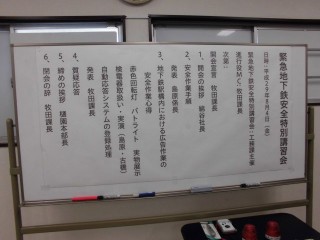 緊急地下鉄安全特別講習会
日時：平成２９年８月４日（金）
緊急地下鉄安全特別講習会：工務課主催
進行役ＭＣ：牧田課長
次第
開会宣言　牧田課長
１、開会の挨拶　細谷社長
２、安全作業手順
発表　島原係長
３、地下鉄駅構内における広告作業の
安全作業心得
赤色回転灯　パトライト　実物展示
検電器取扱い・実演（島原・古橋）
自動応答システムの登録処理
発表　牧田課長
４、質疑応答
５、締めの挨拶　樋園本部長
６、閉会の辞　牧田課長